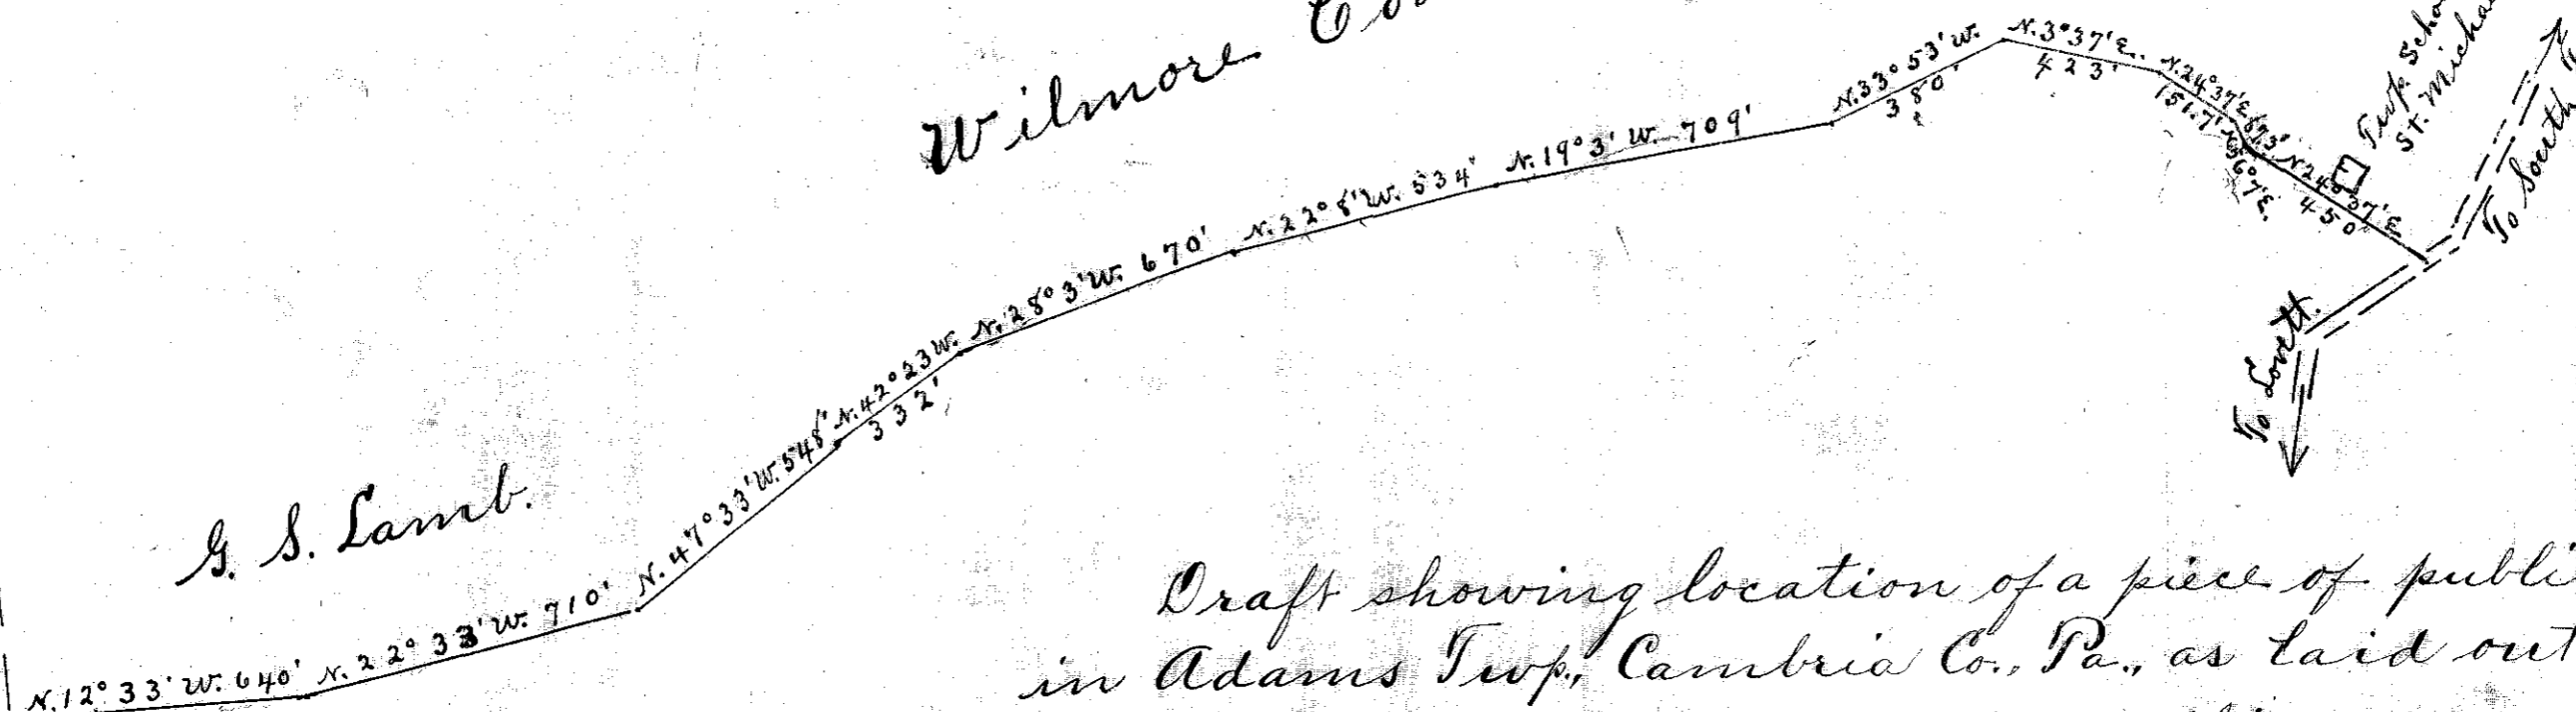 Wilmore
G. S. Lamb.
N. 12° 33' W. 640'
N. 22° 33' W. 710'
N. 47° 33' W. 548'
N. 42° 23 W.
332'
N. 28° 3' W. 670'
N. 22° 8' W. 534'
N. 19° 3' W. 709'
N. 33° 53' W.
380'
N. 3° 37' E.
423'
N. 24° 37' E
151.7'
67.3'
N. 24° 37' E
450'
Twp. Scho
St. Micha
To South
To Lovett.
Draft showing location of a piece of publi
in Adams Twp., Cambria Co., Pa., as laid out